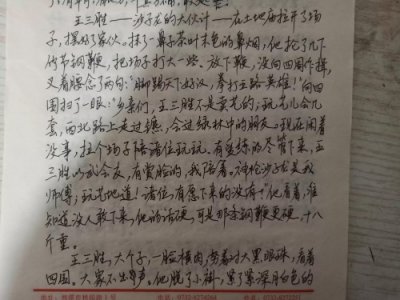 王三胜——沙子龙的大伙计——在土地庙拉开了场
子，摆好了家伙。抹了一鼻子茶叶末色的鼻烟，他抡了几下
竹节钢鞭，把场子打大一些。放下鞭，没向四围作揖，
叉着腰念了两句："脚踢天下好汉，拳打五路英雄！"向四
围扫了一眼："乡亲们，王三胜不是卖艺的；玩艺儿会几
套，西北路上走过镖，会过绿林中的朋友。现在闲着
没事，拉个场子陪诸位玩玩。有爱练的尽管下来，王三
胜以武会友，有赏脸的，我陪着。神枪沙子龙是我
师傅；玩艺地道！诸位，有愿下来的没有？"他看着，准
知道没人敢下来，他的话硬，可是那条钢鞭更硬，十八
斤重。
王三胜，大个子，一脸横肉，努着对大黑眼珠，看着
四围。大家不出声。他脱了小褂，紧了紧深月白色的